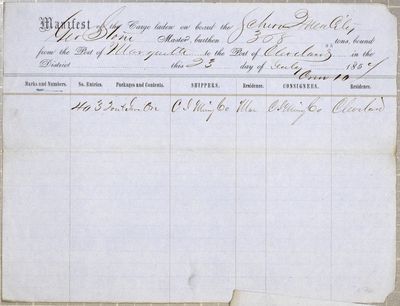 Manifest of the Cargo laden on board the
Geo Stone Master, burthen 358 tons, bound
from the Port of Marquette to the Port of Cleveland in the
District this 23 day of July 185
Marks and Numbers. No. Entries. Packages and Contents. SHIPPERS. Residence. CONSIGNEES. Residence.
443 Tons Iron Ore C I Mining Co Mar C I Mining Co Cleveland